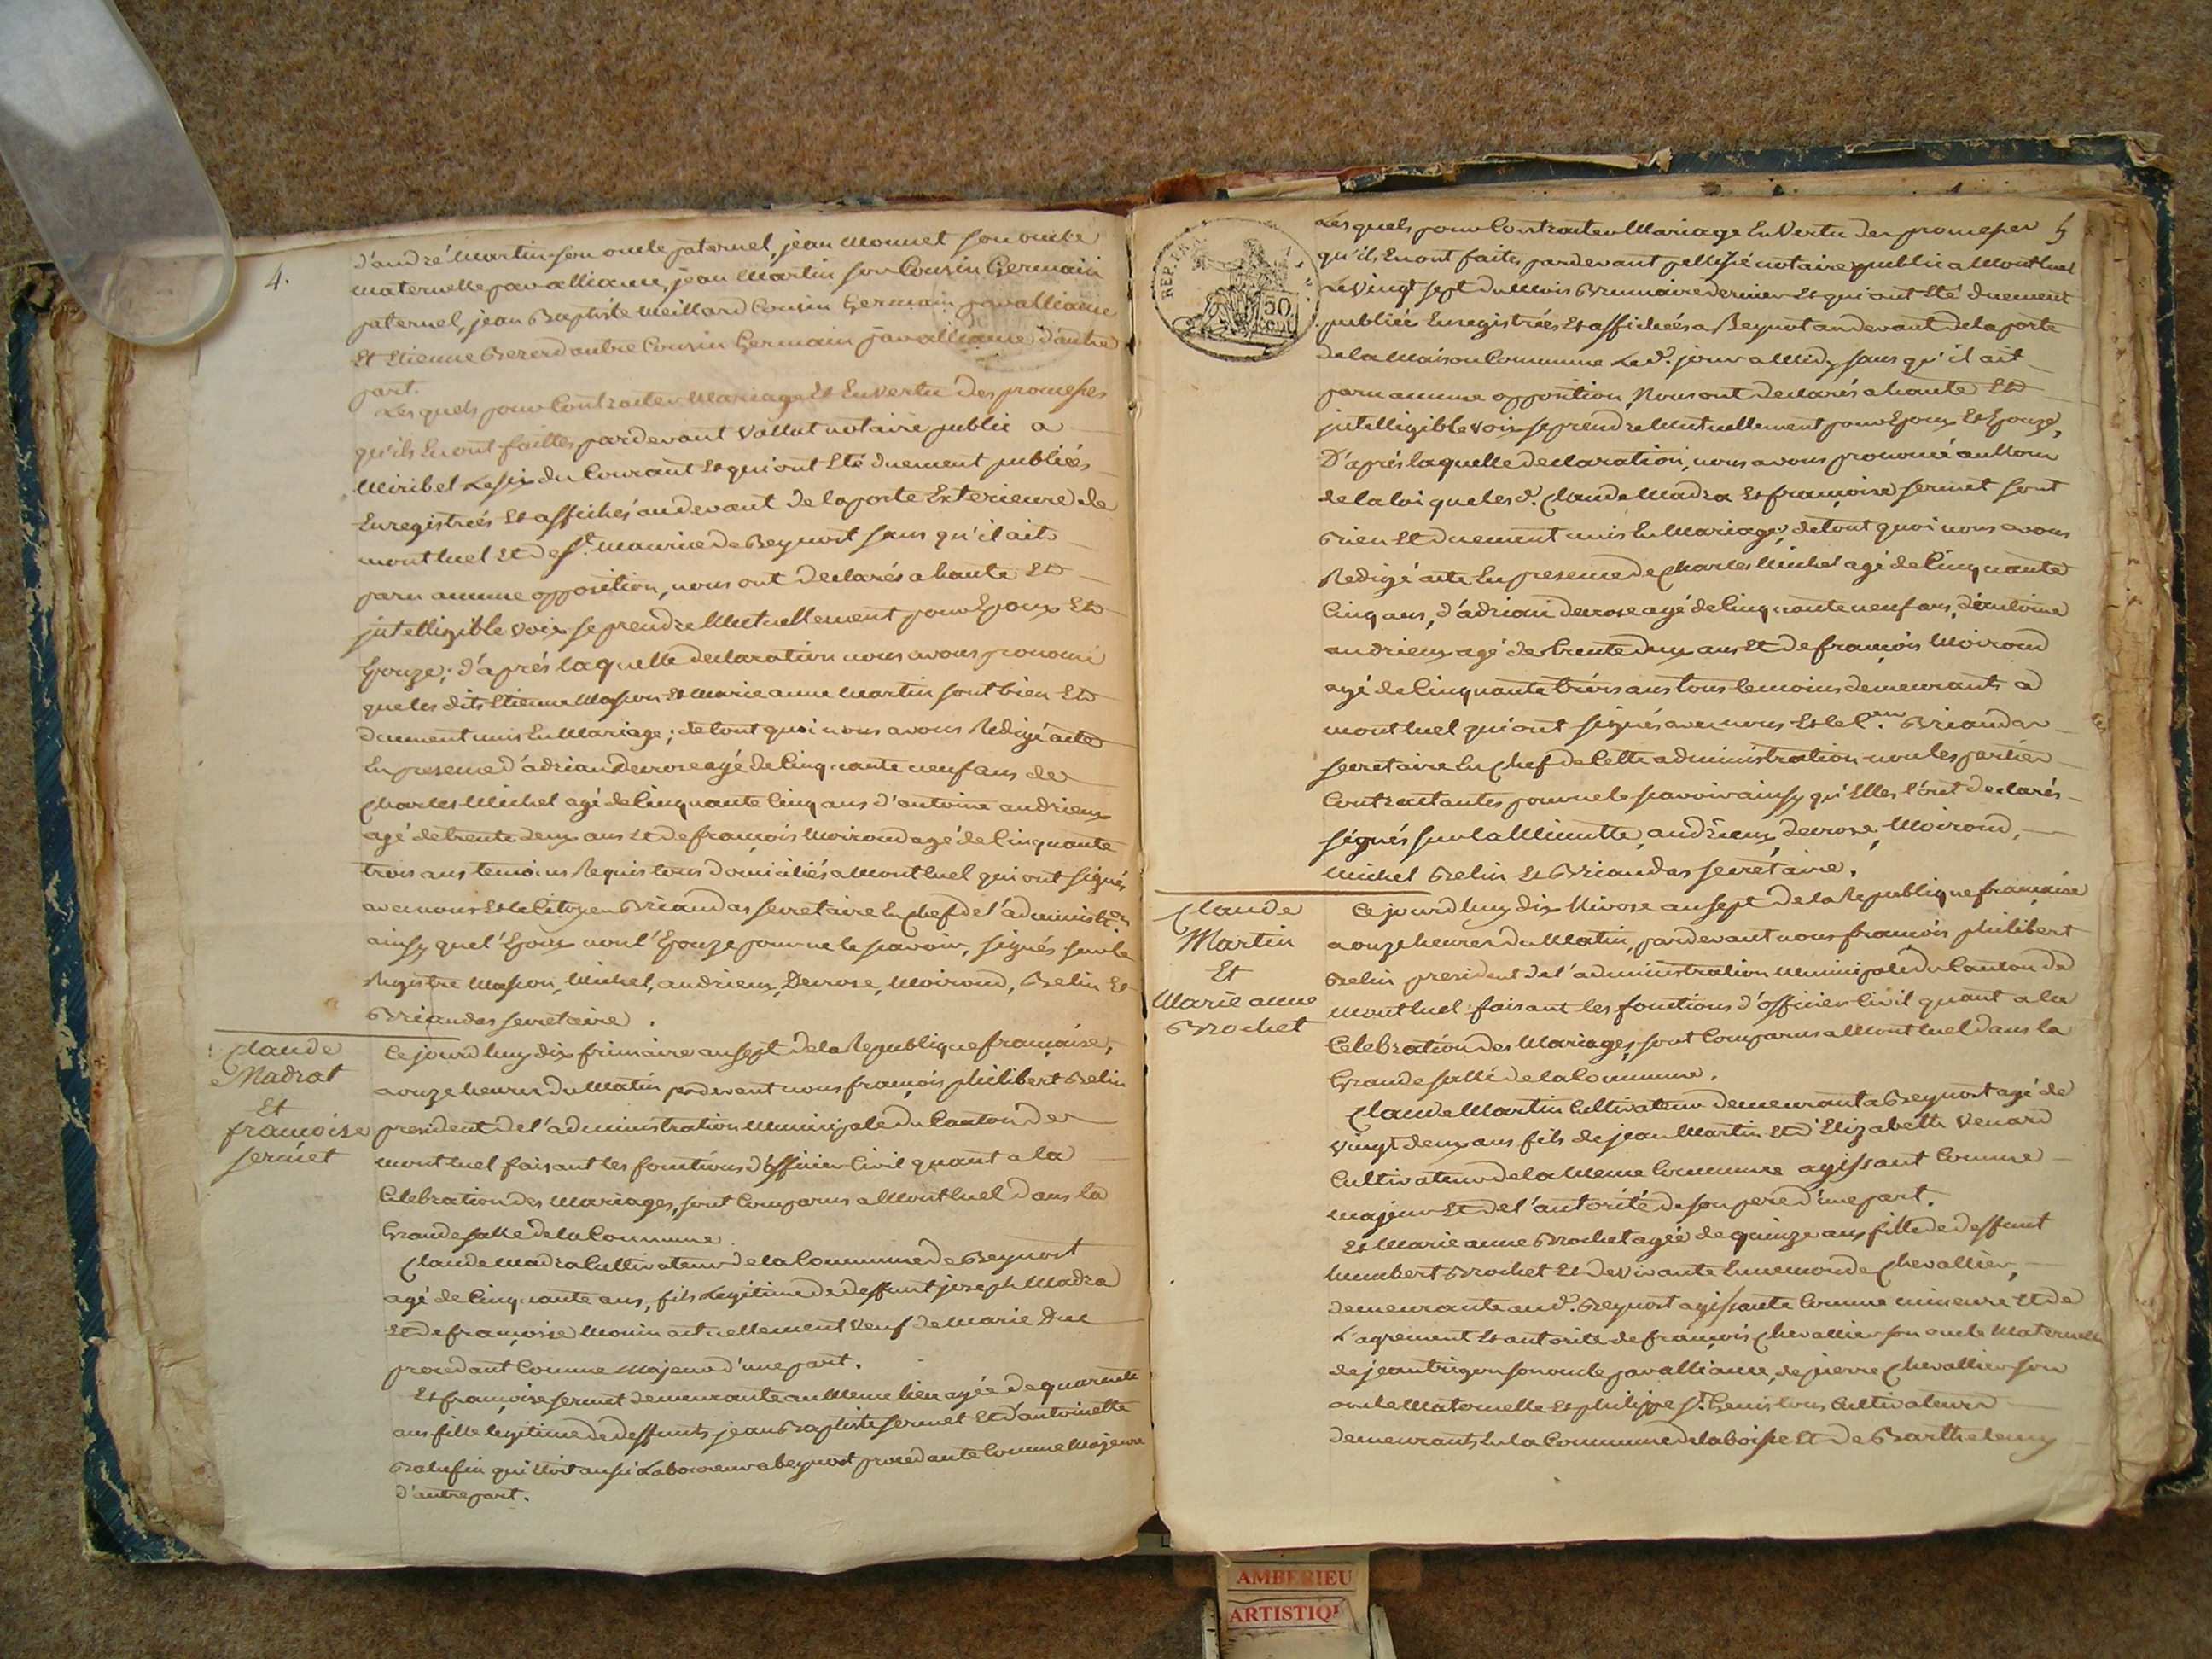 4.
d'andré Martin son oncle paternel, jean Monnet son oncle
maternelle par alliance, jean Martin son Cousin Germain
paternel, jean Baptiste Meillard Cousin Germain par alliance
Et Etienne autre Cousin Germain par alliance d'autre
part.
Lesquels pour Contracter Mariage Et En Vertu des promesses
qu'ils En ont faittes pardevant Vallut notaire public a
Miribel Le six du Courant Et qui ont Eté duement publiés
Enregistrés Et affichés au devant de la porte Exterieure de
montluel Et de St. Maurice de Beynost sans qu'il ait
paru aucune opposition, nous ont declarés a haute Et
jntelligible voix se prendre Mutuellement pour Epoux Et
Epouze; d'aprés laquelle declaration nous avons prononcé
que les dits Etienne Masson Et Marie anne Martin sont bien Et
duement unis En Mariage; de tout quoi nous avons Redigé acte
En presence d'adrian Derose agé de Cinquante neuf ans de
Charles Michel agé de Cinquante Cinq ans d'antoine andrieux
agé de trente deux ans Et de françois Moiroud agé de Cinquante
trois ans temoins Requis tous domiciliés a Montluel qui ont signés
avec nous Et le Citoyen Briandas secretaire En chef de l'administ.on
ainsy que l'Epoux non l'Epouze pour ne le scavoir, signés sur le
Registre Masson, Michel, andrieux, Derose, Moiroud, Belin Et
Briandas secretaire.
Claude
Madrat
Et
françoise
sermet
Ce jourd'huy dix frimaire an sept de la Republique française,
a onze heures du Matin pardevant nous françois philibert Belin
president de l'administration Municipale du Canton de
montluel faisant les fonctions d'officier Civil quant a la
Celebration des Mariages, sont Comparus a Montluel dans la
Grande salle de la Commune.
Claude Madra Cultivateur de la Commune de Beynost
agé de Cinquante ans, fils Legitime de deffunt joseph Madra
Et de françoise Monin actuellement Veuf de Marie Duc
procedant Comme Majeur d'une part.
Et françoise sermet demeurante au Meme lieu agée de quarante
ans fille legitime de deffunts jean Baptiste sermet Et d'antoinette
qui Etoit aussi Laboureur a beynost procedante Comme Majeure
d'autre part.
5
Lesquels pour Contracter Mariage En Vertu des promesses
qu'ils En ont faites pardevant notaire public a Montluel
Le Vingt sept du Mois Brumaire dernier Et qui ont Eté duement
publiées Enregistrées Et affichées a Beynost au devant de la porte
de la Maison Commune Led. jour a Midy sans qu'il ait
paru aucune opposition Nous ont declarés a haute Et
jntelligible voix se prendre Mutuellement pour Epoux Et Epouze,
D'aprés laquelle declaration, nous avons prononcé au Nom
de la loi que lesd. Claude Madra Et françoise sermet sont
Bien Et duement unis En Mariage; de tout quoi nous avons
Redigé acte En presence de Charles Michel agé de Cinquante
Cinq ans, d'adrian Derose agé de Cinquante neuf ans, d'antoine
andrieux agé de trente deux ans Et de françois Moiroud
agé de Cinquante trois ans tous temoins demeurants a
montluel qui ont signés avec nous Et le C.en Briandas
secretaire En chef de Cette administration non les parties
Contractantes pour ne le scavoir ainsy qu'Elles l'ont declarés
signés sur la Minutte, andrieux, Derose, Moiroud,
Michel Belin Et Briandas secretaire.
REP. FRA
50
cent
Claude
Martin
Et
Marie anne
Brochet
Ce jourd'huy dix Nivose an sept de la Republique française
a onze heures du Matin, pardevant nous françois philibert
Belin president de l'administration Municipale du Canton de
montluel faisant les fonctions d'officier Civil quant a la
Celebration des Mariages, sont Comparus a Montluel dans la
Grande salle de la Commune.
Claude Martin Cultivateur demeurant a Beynost agé de
Vingt deux ans fils de jean Martin Et d'Elizabeth Venard
Cultivateur de la Meme Commune agissant Comme
majeur Et de l'autorité de son pere d'une part.
Et Marie anne Brochet agée de quinze ans fille de deffunt
humbert Brochet Et de Vivante Ennemonde Chevallier,
demeurante aud. Beynost agissante Comme mineure Et de
L'agrement Et autorité de françois Chevallier son oncle Maternelle
de jean trigon son oncle par alliance, de pierre Chevallier son
oncle Maternelle Et philippe St. Genis tous Cultivateurs
demeurants En la Commune de la boisse Et de Barthelemy
AMBERIEU
ARTISTIQ